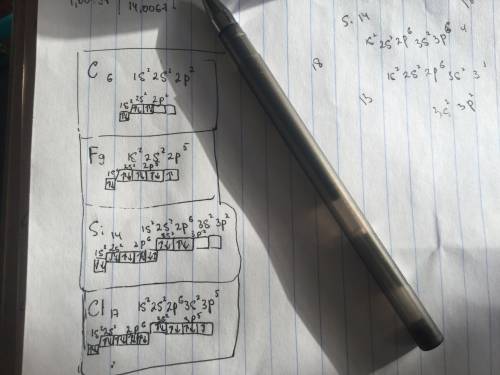 14,0067
C 6 1s² 2s² 2p²
1s² 2s² 2p²
↑↓ ↑↓ ↑↓
F 9 1s² 2s² 2p⁵
1s² 2s² 2p⁵
↑↓ ↑↓ ↑↓ ↑↓ ↑
Si 14 1s² 2s² 2p⁶ 3s² 3p²
1s² 2s² 2p⁶ 3s² 3p²
↑↓ ↑↓ ↑↓ ↑↓ ↑↓ ↑↓ ↑↓
Cl 17 1s² 2s² 2p⁶ 3s² 3p⁵
1s² 2s² 2p⁶ 3s² 3p⁵
↑↓ ↑↓ ↑↓ ↑↓ ↑↓ ↑↓ ↑↓ ↑↓ ↑
Si 14
1s² 2s² 2p⁶ 3s² 3p⁶ 4
18
1s² 2s² 2p⁶ 3s² 3
13
3s² 3p²